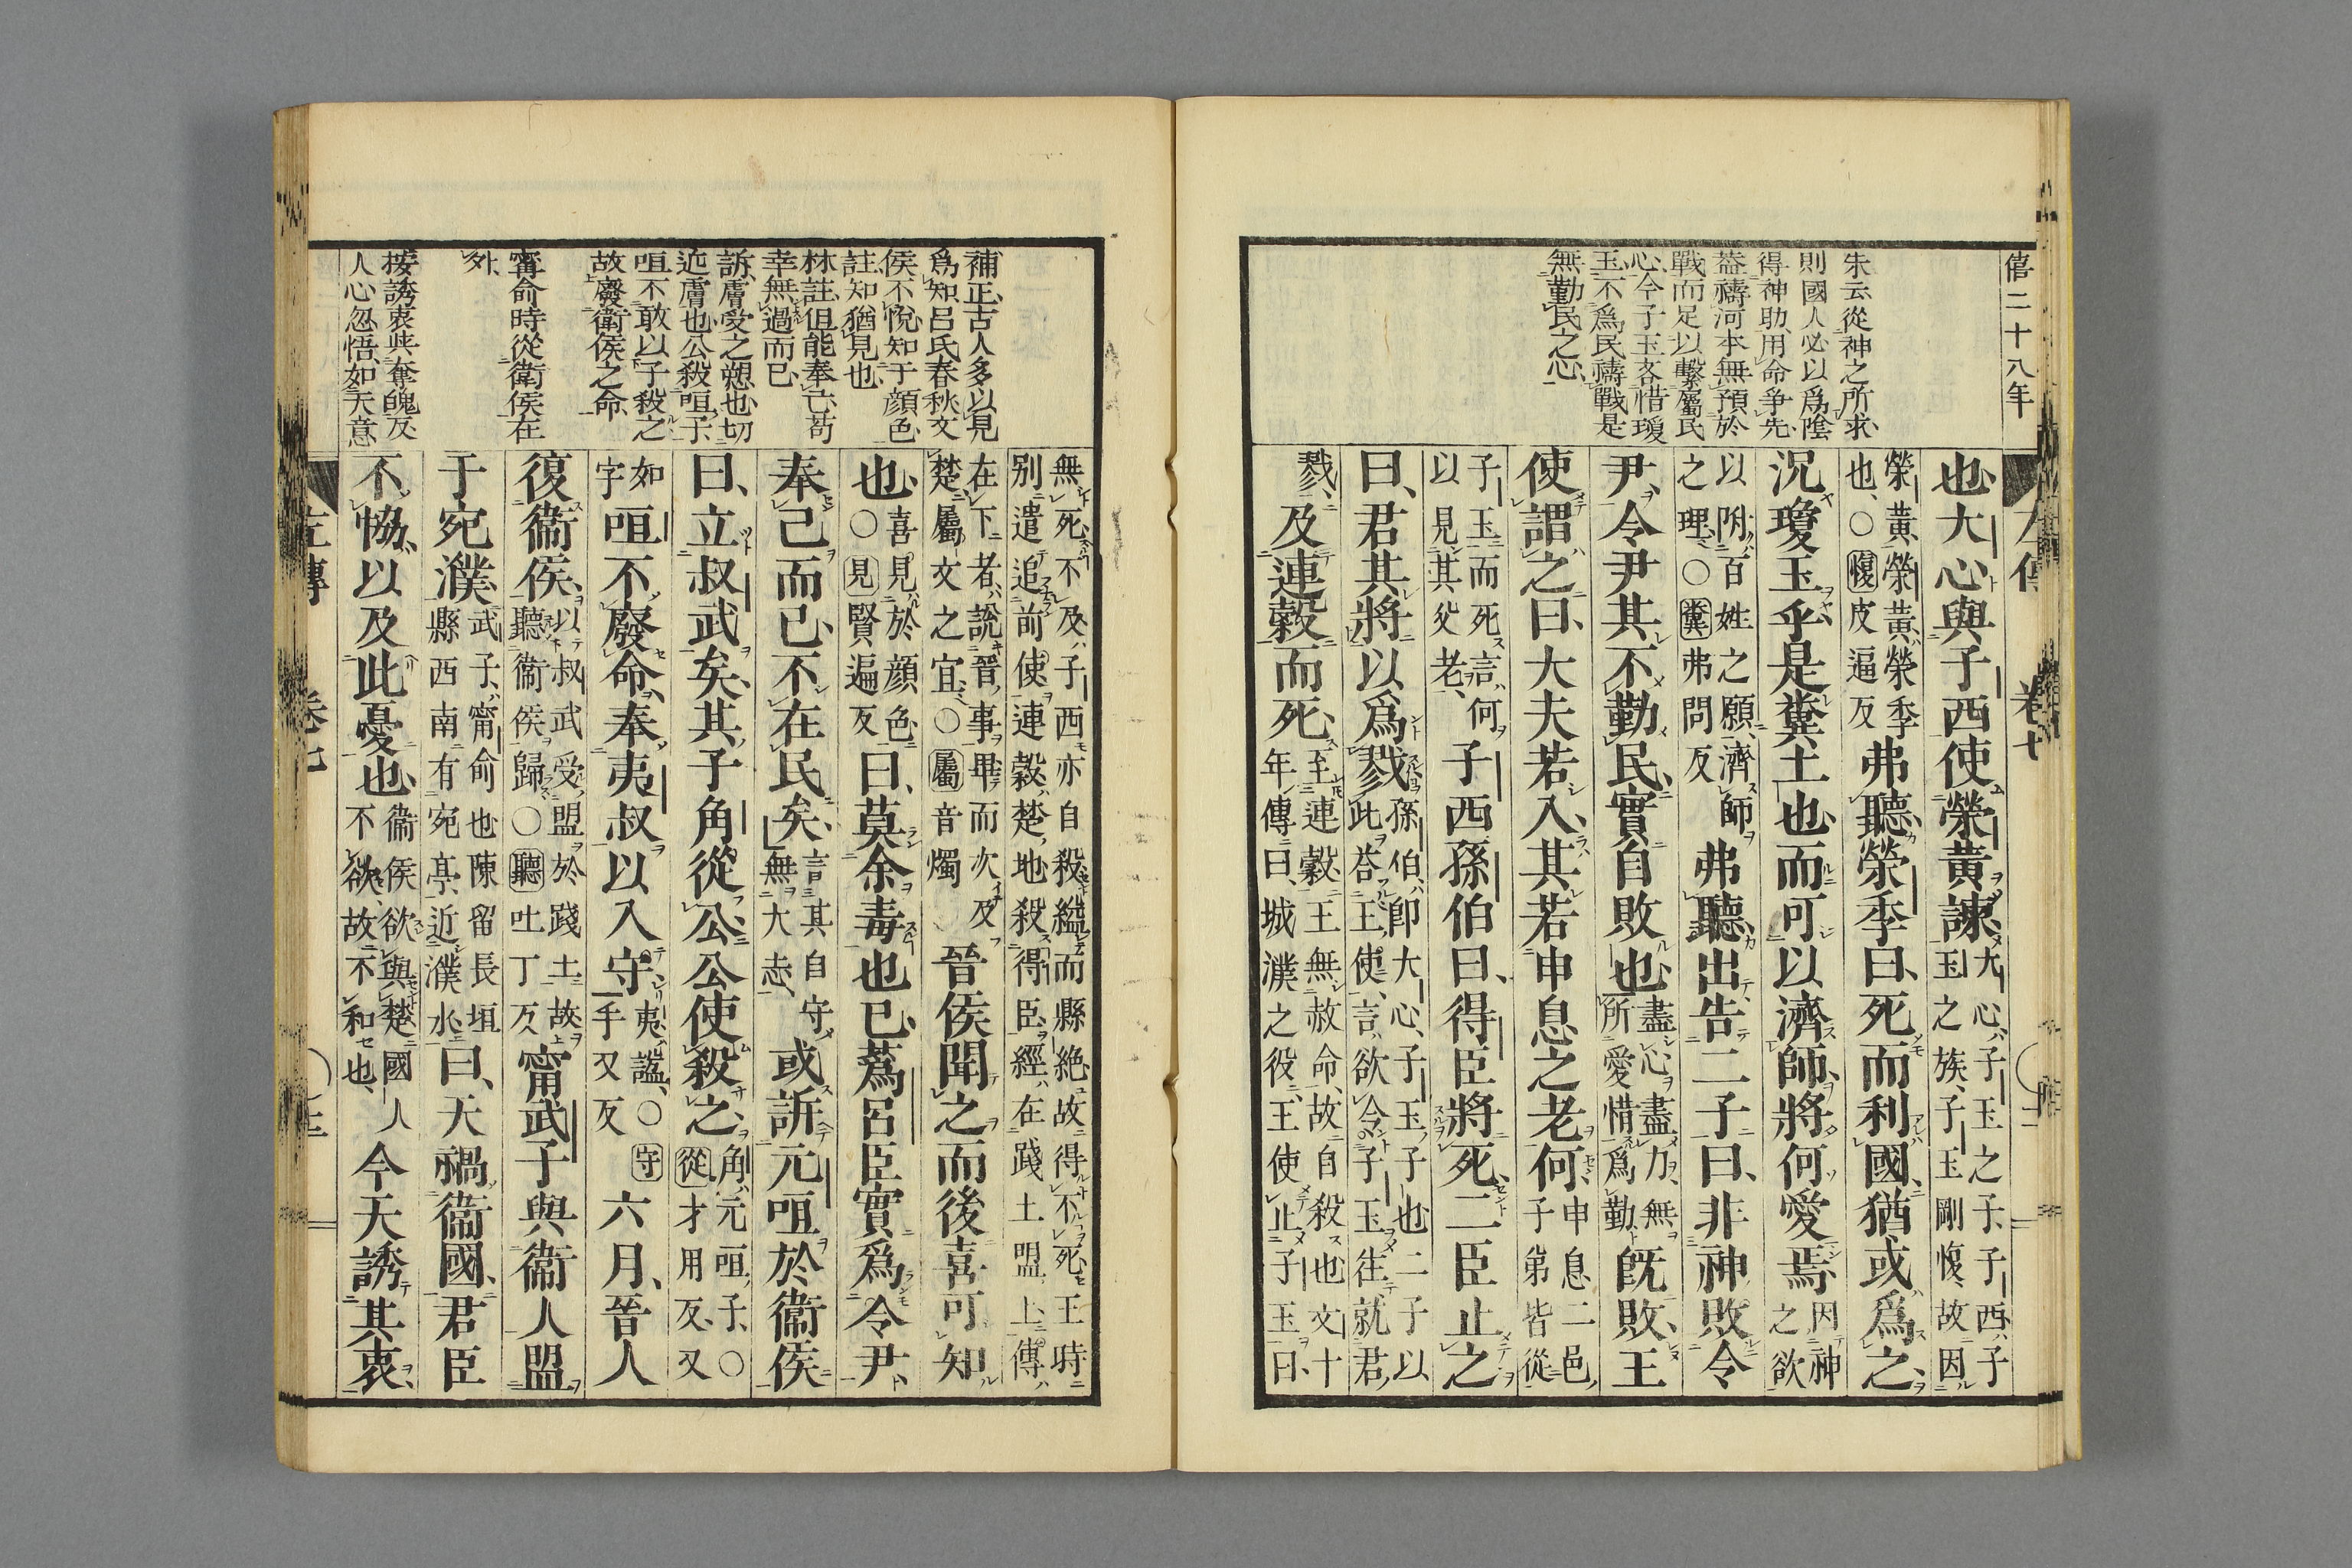 僖二十八年
朱云從神之所求
則國人必以爲陰
得神助用命爭先
蓋禱河本無預於
戰而足以繫屬民
心今子玉吝惜瓊
玉不爲民禱戰是
無勤民之心
左傳 卷七
也大心與子西使榮黃諫大心子玉之子子西子
玉之族子玉剛愎故因
榮黃榮黃榮季
也○愎皮逼反弗聽榮季曰死而利國猶或爲之
況瓊玉乎是糞土也而可以濟師將何愛焉因神
之欲
以附百姓之願濟師
之理○糞弗問反弗聽出告二子曰非神敗令
尹令尹其不勤民實自敗也盡心盡力無
所愛惜爲勤既敗王
使謂之曰大夫若入其若申息之老何申息二邑
子弟皆從
子玉而死言何
以見其父老子西孫伯曰得臣將死二臣止之
曰君其將以爲戮孫伯卽大心子玉子也二子以
此荅王使言欲令子玉往就君
戮及連穀而死至連穀王無赦命故自殺也文十
年傳曰城濮之役王使止子玉曰
補正古人多以見
爲知呂氏春秋文
侯不悅知于顔色
註知猶見也
林註但能奉己苟
幸無過而已
訴膚受之愬也切
近膚也公殺咺子
咺不敢以子殺之
故廢衛侯之命
甯俞時從衛侯在
外
按誘衷與奪魄反
人心忽悟如天意
無死不及子西亦自殺縊而縣絶故得不死王時
别遣追前使連穀楚地殺得臣經在踐土盟上傳
在下者說晉事畢而次及
楚屬文之宜○屬音燭晉侯聞之而後喜可知
也喜見於顔色
○見賢遍反曰莫余毒也已蔿呂臣實爲令尹
奉己而已不在民矣言其自守
無大志或訴元咺於衛侯
曰立叔武矣其子角從公公使殺之角元咺子○
從才用反又
如
字咺不廢命奉夷叔以入守夷謚○守
手又反六月晉人
復衛侯以叔武受盟於踐土故
聽衛侯歸○聽吐丁反甯武子與衛人盟
于宛濮武子甯俞也陳留長垣
縣西南有宛亭近濮水曰天禍衛國君臣
不協以及此憂也衛侯欲與楚國人
不欲故不和也今天誘其衷
左傳 卷七